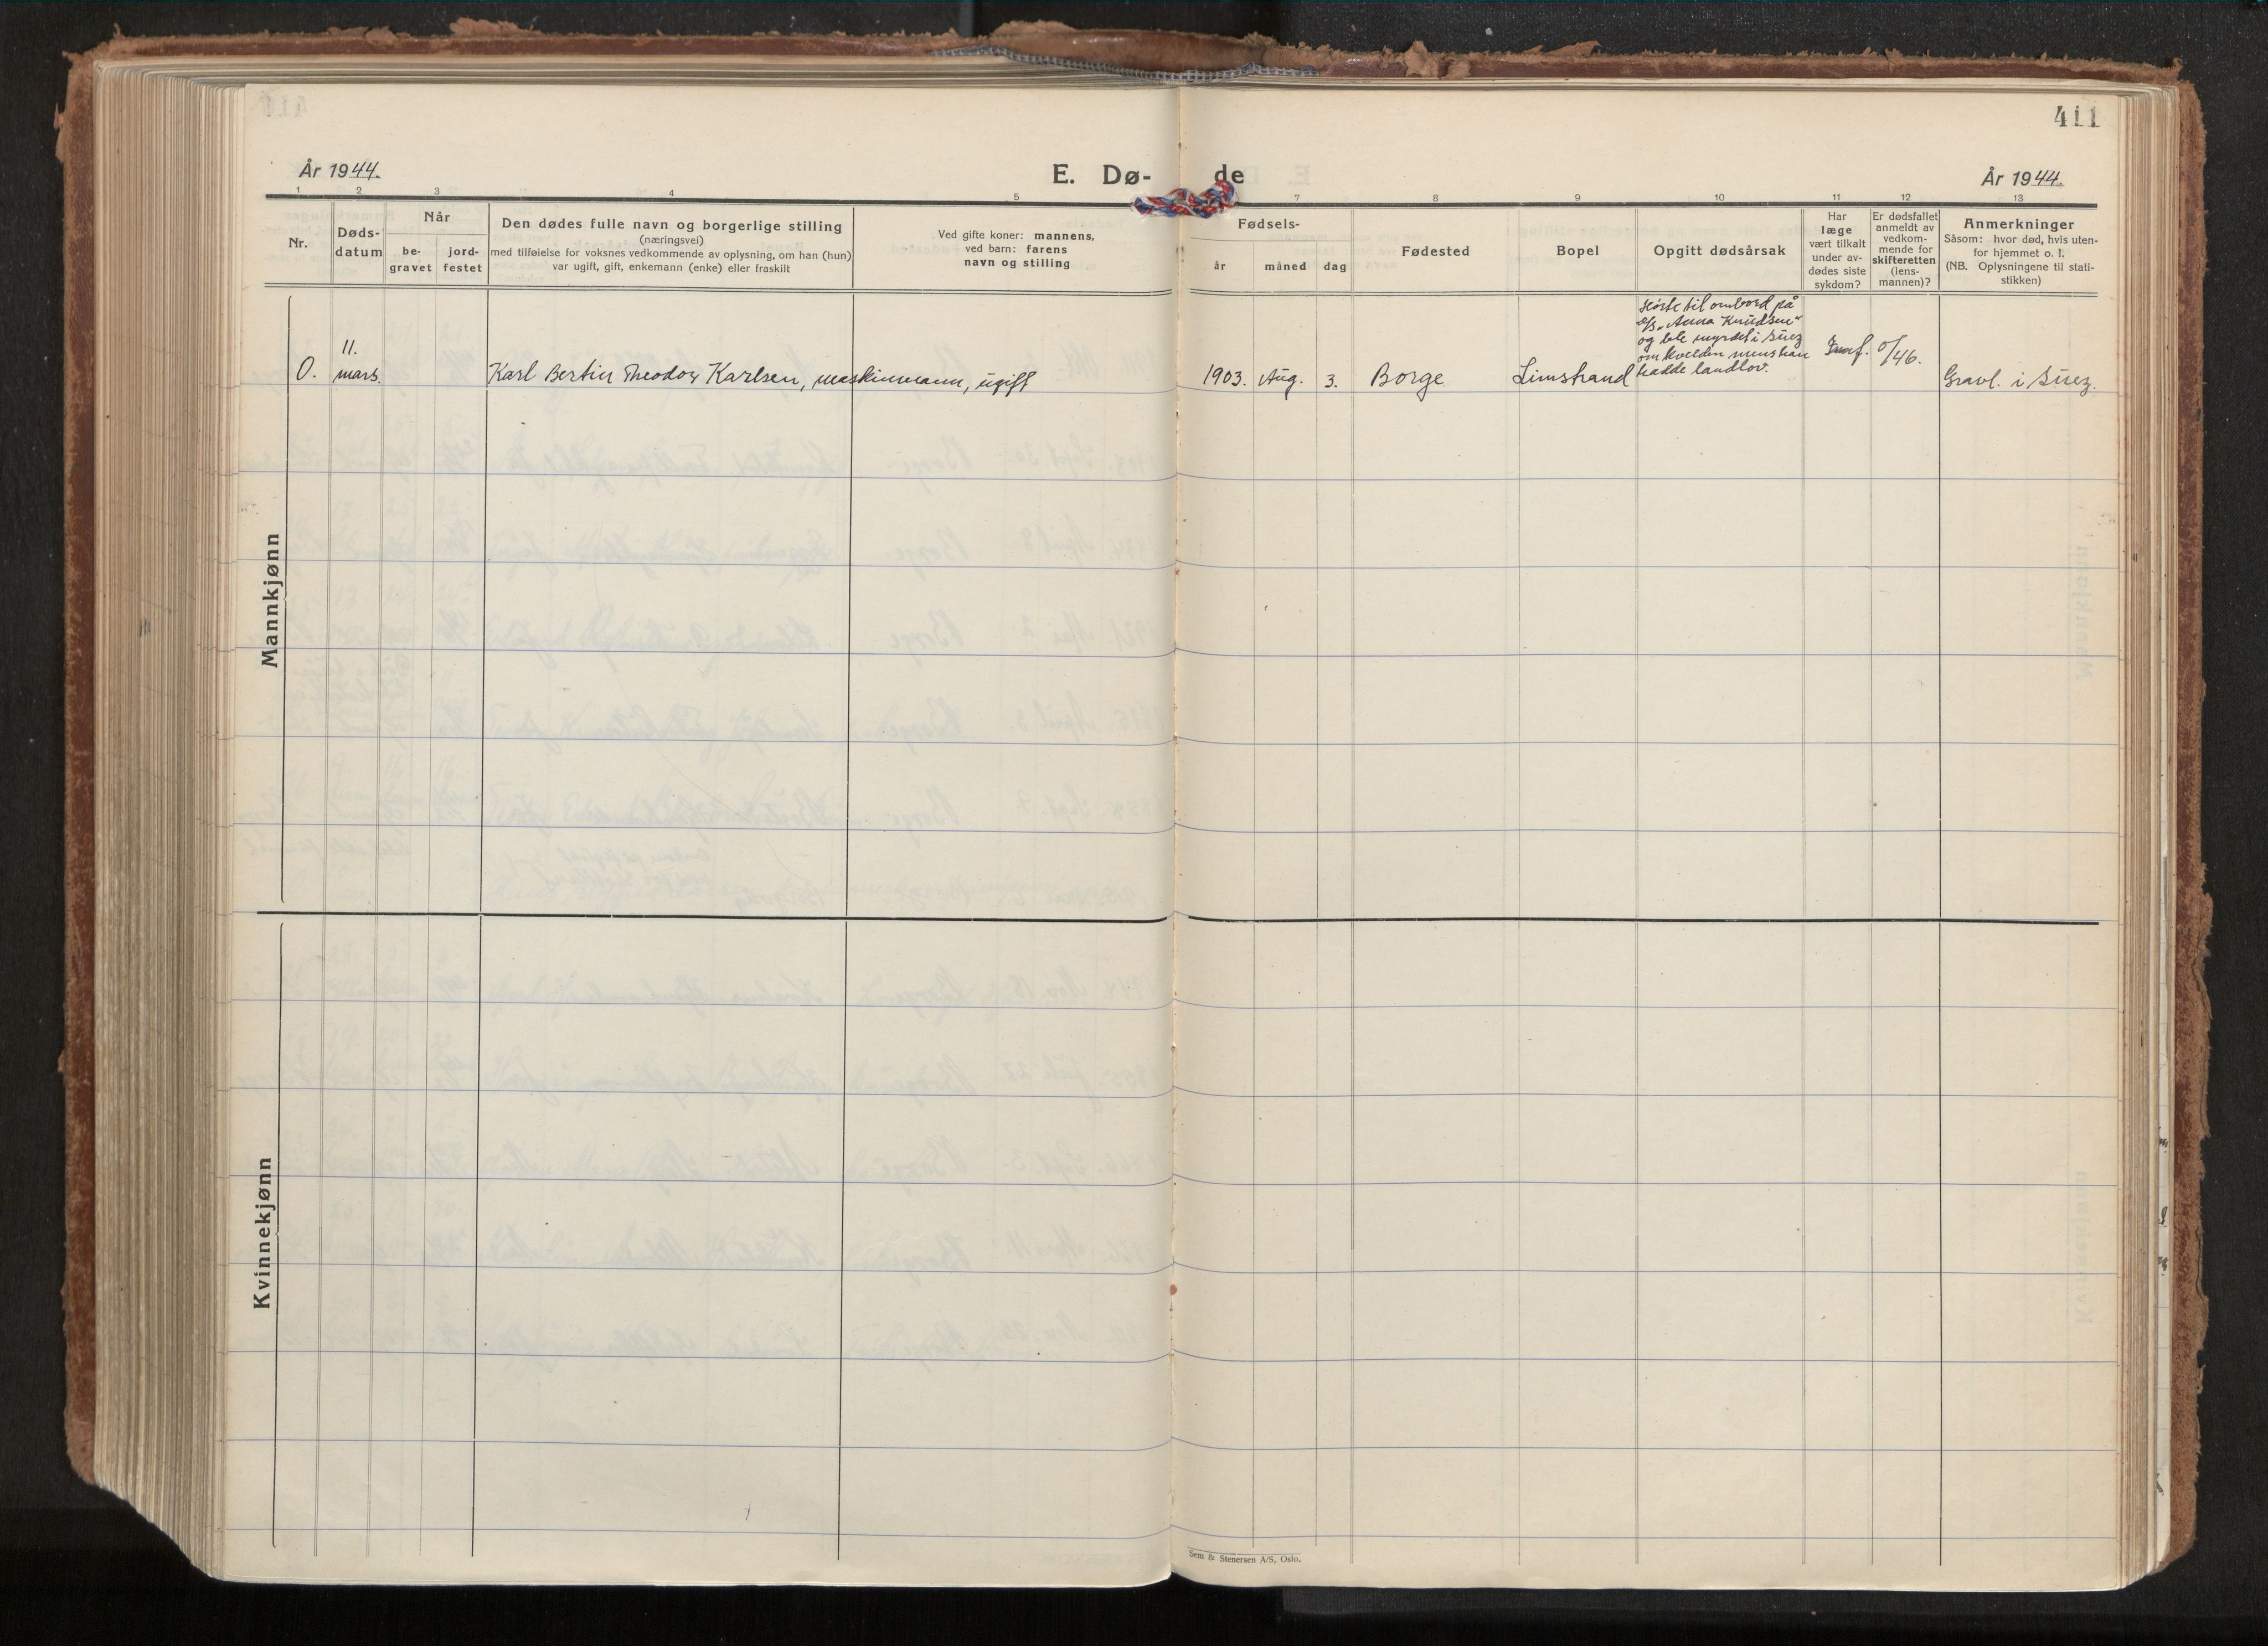 411
År 1944.
E. Dø-
de
År 1944.
1 2 3 4 5 7 8 9 10 11 12 13
Nr.
Døds-
datum
Når
be-
gravet
jord-
festet
Den dødes fulle navn og borgerlige stilling
(næringsvei)
med tilføielse for voksnes vedkommende av oplysning, om han (hun)
var ugift, gift, enkemann (enke) eller fraskilt
Ved gifte koner: mannens,
ved barn: farens
navn og stilling
Fødsels-
år måned dag
Fødested
Bopel
Opgitt dødsårsak
Har
læge
vært tilkalt
under av-
dødes siste
sykdom?
Er dødsfallet
anmeldt av
vedkom-
mende for
skifteretten
(lens-
mannen)?
Anmerkninger
Såsom: hvor død, hvis uten-
for hjemmet o. l.
(NB. Oplysningene til stati-
stikken)
Mannkjønn
0.
11.
mars.
Karl Bertin Theodor Karlsen, maskinmann, ugift
1903. Aug. 3.
Borge
Limstrand
Hørte til ombord på
"Anna Knudsen"
og ble myrdet i Suez
om kvelden mens han
hadde landlov.
/46.
Gravl. i Suez.
Kvinnekjønn
Sem & Stenersen A/S, Oslo.